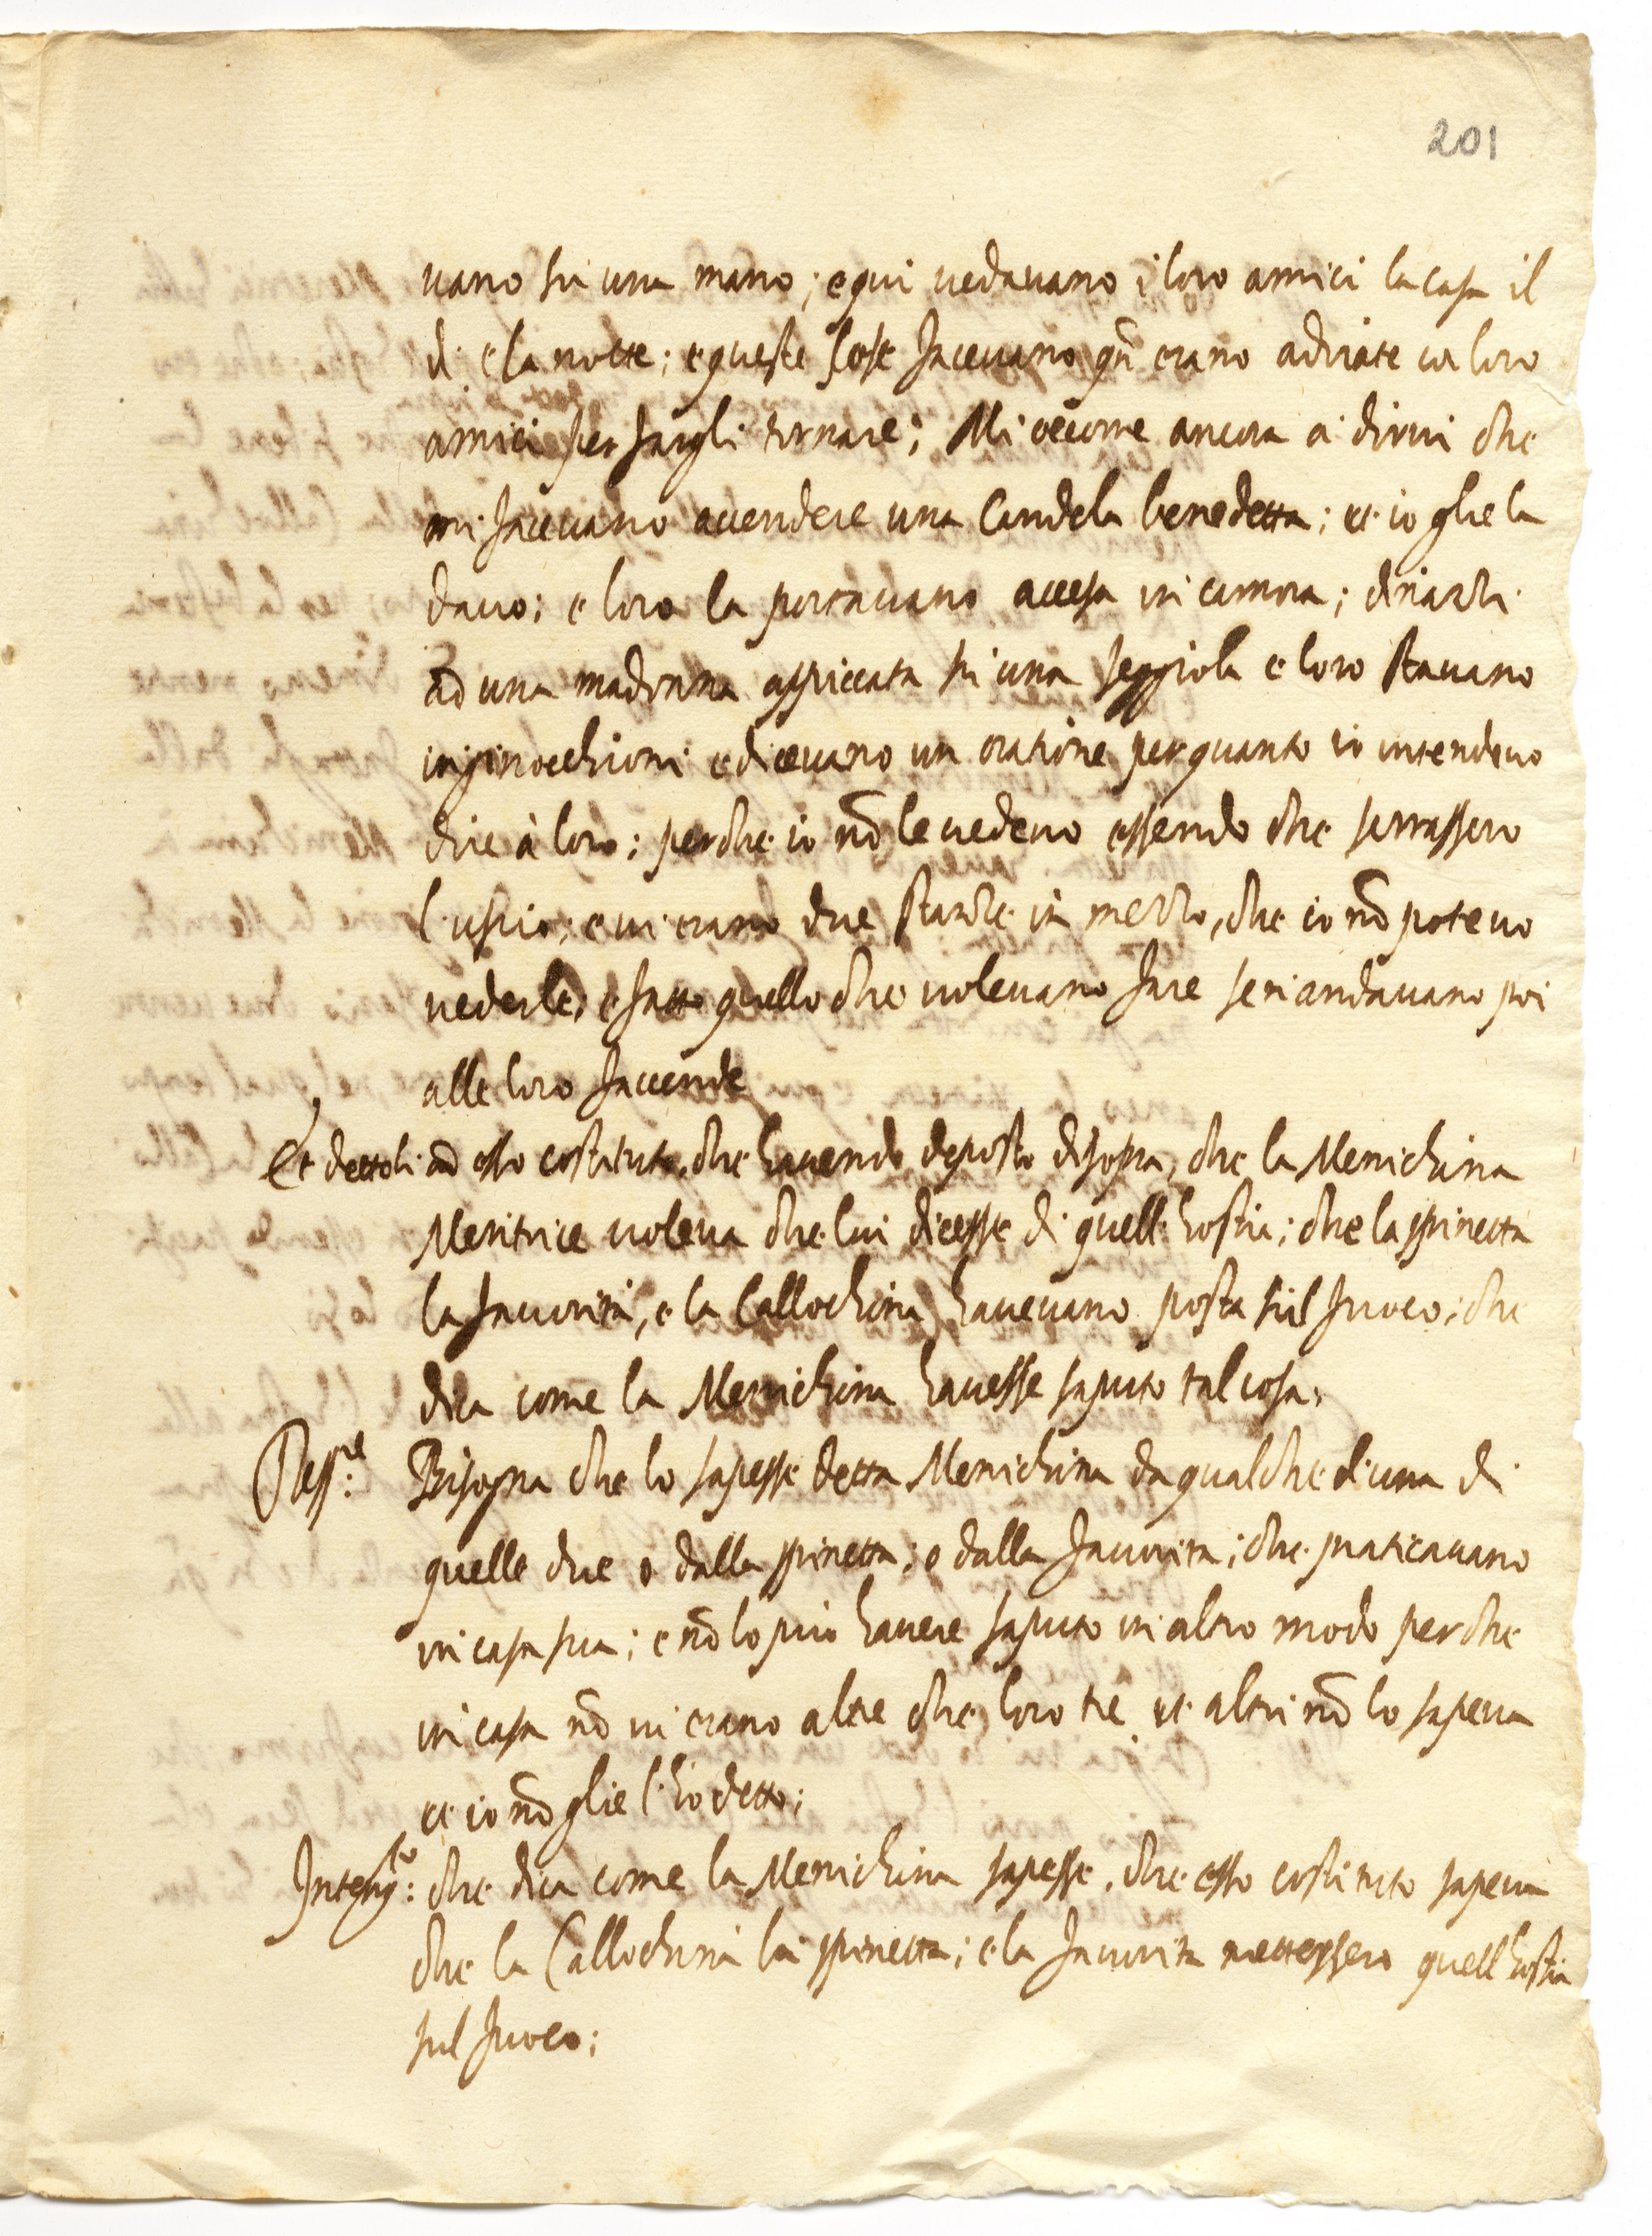 201
uano su una mano; e qui uedauano i loro amici la casa il
dì e la notte; e queste cose faceuano qñ erano adirate co loro
amici per fargli tornare; Mi occorre ancora à dirui che
mi faceuano accendere una Candela benedetta; et io glie la
dauo; e loro la portauano accesa in camera; dinazti
ad una madonna appiccata su una seggiola e loro stauano
inginocchioni e diceuano un oratione per quanto io intendeuo
dire à loro; perche io nõ le uedeuo essendo che serrassero
l'uscio; e ui erano due stanze in mezzo, che io nõ poteuo
uederle; e fatto quello che uoleuano fare se n'andauano poi
alle loro faccende
Et dettoli ad esso costituto, che hauendo deposto di sopra, che la Menichina
Meritrice uoleua che lui dicesse di quell'hostia; che la spinetta
la fauorita, e la Callochina haueuano posta sul fuoco; che
dica come la Menichina hauesse saputo tal cosa;
Resp.: Bisogna che lo sapesse detta Menichina da qualche d'una di
quelle due o dalla spinetta; o dalla fauorita; che praticauano
in casa sua; e nõ lo può hauere saputo in altro modo perche
in casa nõ ui erano altre che loro tre et altri nõ lo sapeua
et io nõ glie l'hò detto;
Interrog.to: che dica come la Menichina sapesse, che esso costituto sapeua
che la Callochina la spinetta; e la fauorita mettessero quell'hostia
sul fuoco;